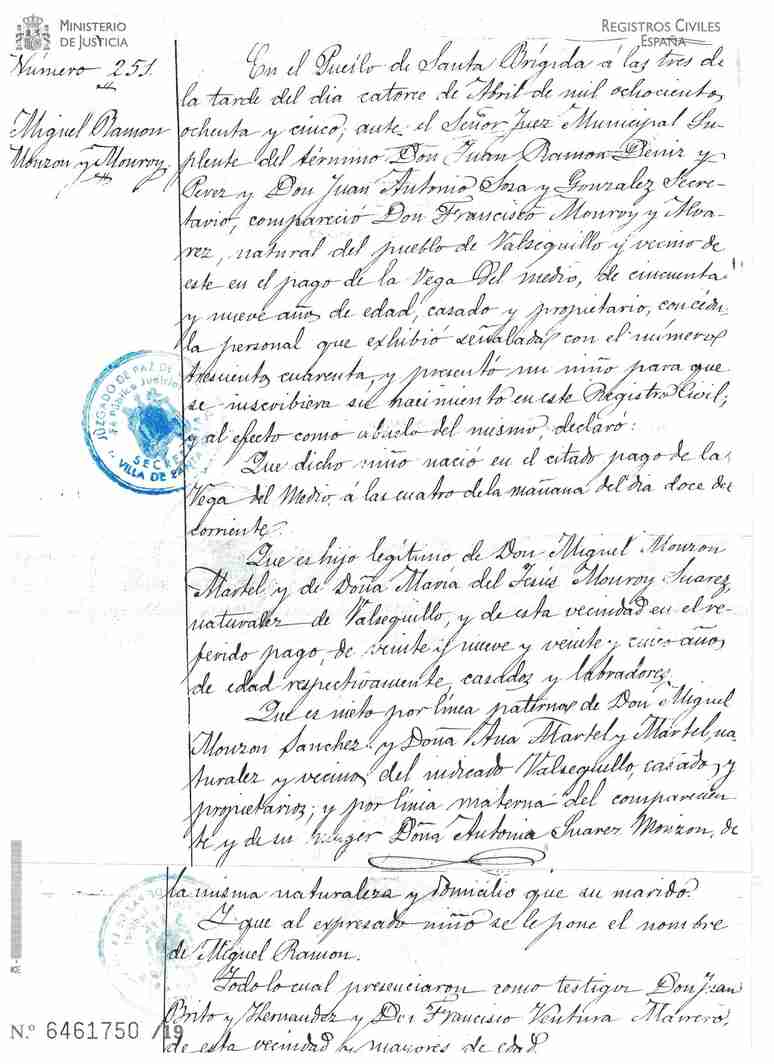 MINISTERIO
DE JUSTICIA
REGISTROS CIVILES
ESPAÑA
Número 251
Miguel Ramon
Monzon y Monroy
En el Pueblo de Santa Brígida á las tres de
la tarde del dia catorce de Abril de mil ochocientos
ochenta y cinco; ante el Señor Juez Municipal Su-
plente del término Don Juan Ramon Deniz y
Perez y Don Juan Antonio Sosa y Gonzalez Secre-
tario, compareció Don Francisco Monroy y Alva-
rez, natural del pueblo de Valsequillo y vecino de
este en el pago de la Vega del medio, de cincuenta
y nueve años de edad, casado y propietario, con cédu-
la personal que exhibió señalada con el número
trescientos cuarenta, y presentó un niño para que
se inscribiera su nacimiento en este Registro Civil;
y al efecto como abuelo del mismo, declaró:
Que dicho niño nació en el citado pago de la
Vega del Medio á las cuatro de la mañana del dia doce del
corriente.
Que es hijo legítimo de Don Miguel Monzon
Martel y de Doña María del Jesús Monroy Suarez,
naturales de Valsequillo, y de esta vecindad en el re-
ferido pago, de veinte y nueve y veinte y cinco años
de edad respectivamente, casados y labradores.
Que es nieto por línea paterna de Don Miguel
Monzon Sanchez y Doña Ana Martel y Martel, na-
turales y vecinos del indicado Valsequillo, casados y
propietarios; y por línia materna del comparecien-
te y de su muger Doña Antonia Suarez Monzon, de
la misma naturaleza y domicilio que su marido.
Y que al expresado niño se le pone el nombre
de Miguel Ramon.
Todo lo cual presenciaron como testigos Don Juan
Brito y Hernandez y Don Francisco Ventura Marrero,
de esta vecindad y mayores de edad.
JUZGADO DE PAZ DE
Fe Pública Judicial
SECRE
VILLA DE SANTA
N.º 6461750 /19